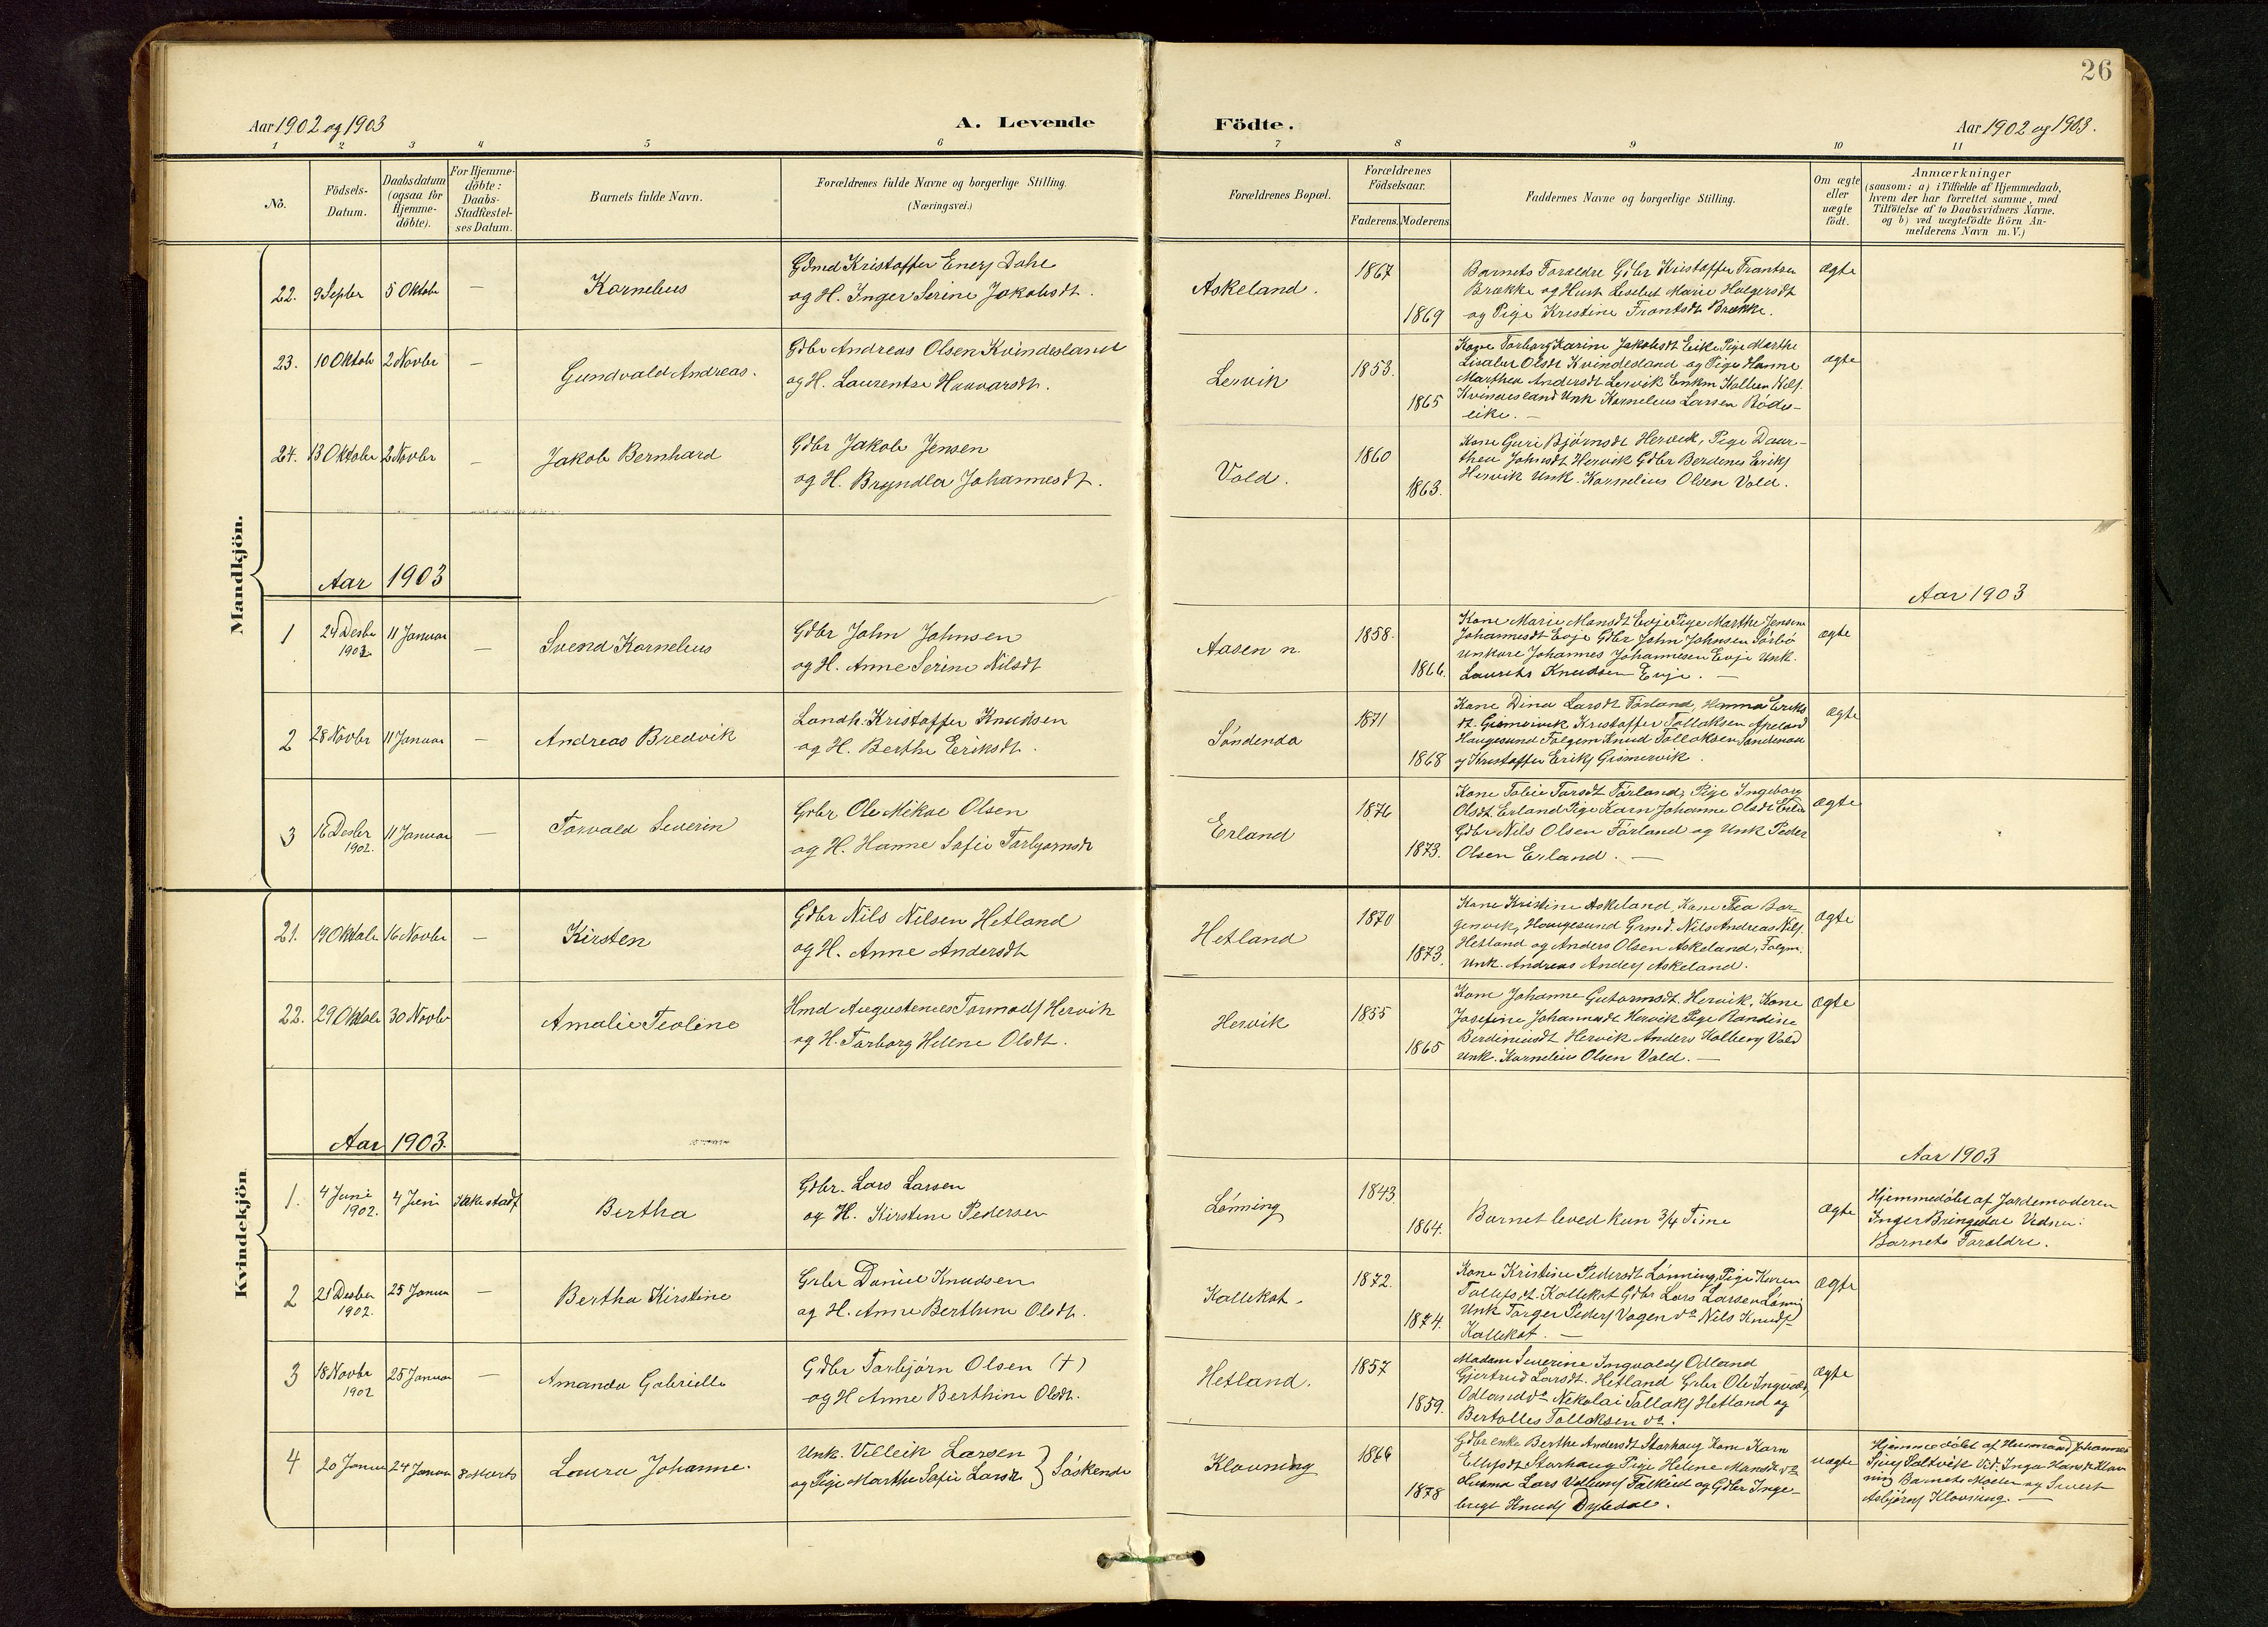 26
Aar 1902 og 1903
A. Levende
Födte.
Aar 1902 og 1903.
1 2 3 4 5 6 7 8 9 10 11
No.
Födsels-
Datum.
Daabsdatum
(ogsaa for
Hjemme-
döbte).
For Hjemme-
döbte:
Daabs-
Stadfæstel-
ses Datum.
Barnets fulde Navn.
Forældrenes fulde Navne og borgerlige Stilling.
(Næringsvei.)
Forældrenes Bopæl.
Forældrenes
Födselsaar.
Faderens. Moderens
Faddernes Navne og borgerlige Stilling.
Om ægte
eller
uægte
födt.
Anmærkninger
(saasom: a) i Tilfælde af Hjemmedaab,
hvem der har forrettet samme, med
Tilföielse af to Daabsvidners Navne.
og b) ved uægtefödte Börn An-
melderens Navn m. V.)
Mandkjön.
22. 9 Septbr 5 Oktobr — Kornelius
Gdmd Kristoffer Enersj Dahl
og H. Inger Serine Jakobsdt.
Askeland.
1867
1869
Barnets Forældre Gdbr Kristoffer Frantsen
Brække og Hust Lisebet Marie Holgersdt
og Pige Kristine Frantsdt Brække.
Ægte
23. 10 Oktob 2 Novbr — Gundvald Andreas.
Gdbr Andreas Olsen Kvindesland
og H. Laurentse Havvarsdt.
Lervik
1853.
1865
Kone Torborg Karine Jakobsdt Eike Pige Marthe
Lisabet Olsdt Kvindesland og Pige Hanne
Marthea Andersdt Lervik Enkm Kolben Nilsj.
Kvindesland Unk Kornelius Larsen Röde-
eike. —
ægte
24. 13 Oktober 2 Novbr — Jakob Bernhard
Gdbr Jakob Jensen
og H. Bryndla Johannesdt.
Vold.
1860
1863.
Kone Guri Bjørnsdt Hervik, Pige Daar-
thea Johnsdt Hervik Gdbr Berdenes Eriksj
Hervik Unk. Kornelius Olsen Vold.
Aar 1903
Aar 1903
1 24 Desbr
1902
11 Januar — Svend Kornelius
Gdbr John Johnsen
og H. Anne Serine Nilsdt
Aasen n.
1858.
1866.
Kone Marie Monsdt Evje Pige Marthe Jensine
Johannesdt Evje Gdbr John Johnsen Sörbö
Unkare Johannes Johannesen Evje Unk.
Laurits Knudsen Evje. —
ægte
2 28 Novbr 11 Januar — Andreas Bredvik
Landh. Kristoffer Knudsen
og H. Berthe Eriksdt.
Söndenda
1871
1868
Kone Dina Larsdt Förland, Hanna Eriks
dt. Grønnevik Kristoffer Tollaksen Apeland
Haugesund Folgem Knud Tollaksen Sandenaa
og Kristoffer Eriksj
Ægte
3 16 Desbr
1902.
11 Januar — Torvald Severin
Gdbr Ole Mikal Olsen
og H. Hanne Sofie Torbjørnsdt
Erland
1876
1873.
Kone Tobie Torsdt Förland, Pige Ingeborg
Olsdt. Erland Pige Karn Johanne Olsdt
Gdbr Nils Olsen Förland og Unk Peder
Olsen Erland. —
Ægte
Kvindekjön
21. 19 Oktob 16 Novbr — Kirsten
Gdbr Nils Nilsen Hetland
og H. Anne Andersdt
Hetland
1870
1873.
Kone Kristine Askeland, Kone Thea Bor-
genvik, Haugesund Grmd. Nils Andreas Nilsj.
Hetland og Anders Olsen Askeland, Folgm.
Unk. Andreas Andersj Askeland.
Ægte
22. 29 Oktob 30 Novbr Amalie Teoline
Hmd Augustenius Tormodsj Hervik
og H. Torborg Helene Olsdt.
Hervik
1855
1865
Kone Johanne Gutormsdt Hervik, Kone
Josefine Johannesdt Hervik Pige Randine
Berdiniusdt Hervik Anders Kolbensj Vold
Unk. Kornelius Olsen Vold. —
Ægte
Aar 1903.
Aar 1903
1. 4 Juni
1902.
4 Juni Ikke stadf Bertha
Gdbr. Lars Larsen
og H. Kirstine Pedersen
Lönning
1843
1864.
Barnet leved kun 3/4 Time
Ægte
Hjemmedöbt af Jordemoderen
Inger Bringedal Vidner:
Barnets Forældre.
2 21 Desbr
1902.
25 Januar — Bertha Kirstine
Gdbr Daniel Knudsen
og H. Anne Berthine Olsdt.
Kallekot.
1872.
1874.
Kone Kristine Pedersdt Lönning, Pige Karen
Tollefsdt. Kallekot Gdbr Lars Larsen Lönning
Unk Torger Pedersj Vagen do Nils Knudsj
Kallekot. —
Ægte
3 18 Novbr
1902
25 Januar — Amanda Gabrielle
Gdbr Torbjörn Olsen (†)
og H Anne Berthine Olsdt.
Hetland.
1857
1859.
Madam Severine Ingvaldsj Odland
Gjertrud Larsdt. Hetland Gdbr Ole Ingvalds
Odland do Nikolai Tollaksj Hetland og
Bertolles Tollaksen do.
Ægte
4 20 Januar 24 Januar 8 Marts Laura Johanne.
Unk. Villeik Larsen
og Pige Marthe Sofie Larsdt } Söskende
Klovning
1866
1878
Gdbr enke Berthe Andersdt Storhaug Kone Karn
Ellefsdt Storhaug Pige Helene Monsdt do
Lars Falkeid og Gdbr Inge-
brigt Knudsj Dybdal.
uægte
Hjemmedöbt af Husmand Johannes
Saltvik Vid: Inga Hansdt Klov
ning Barnets Moder og Sivert
Asbjörnsj Klovning. —